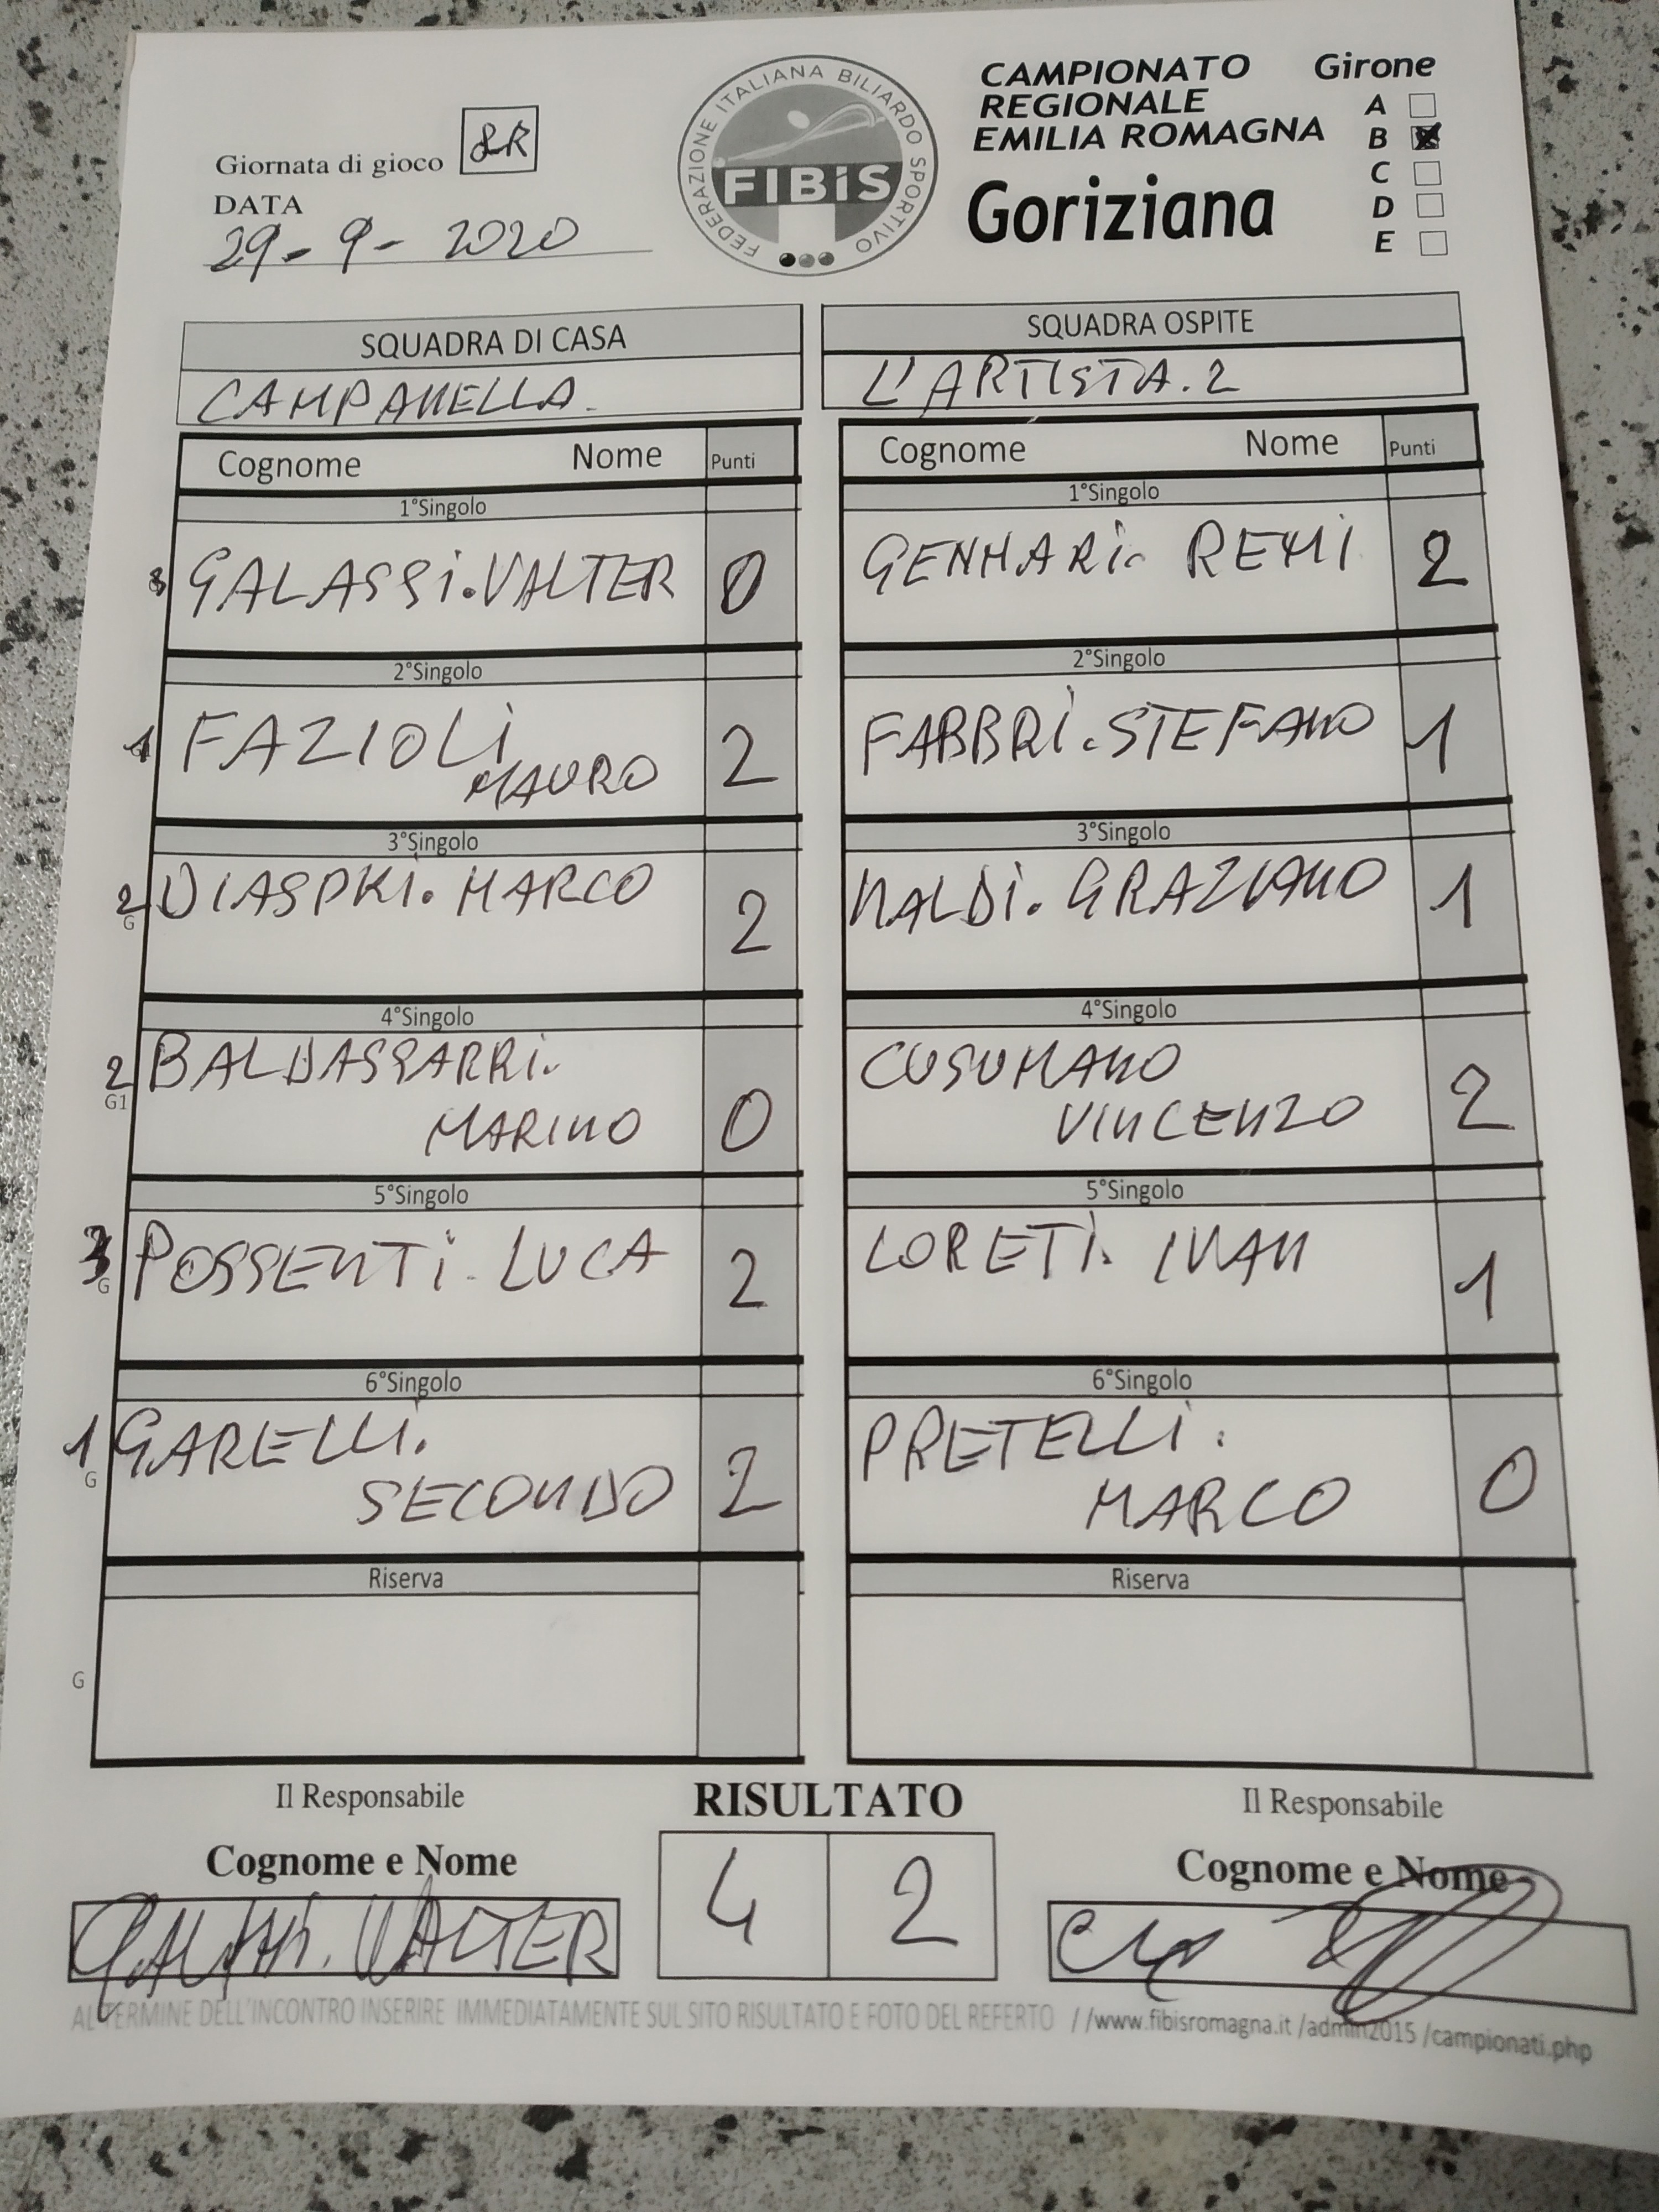 Giornata di gioco 8R
DATA
29-9-2020
FEDERAZIONE ITALIANA BILIARDO SPORTIVO
FIBiS
CAMPIONATO
REGIONALE
EMILIA ROMAGNA
Goriziana
Girone
A
B
C
D
E
SQUADRA DI CASA
CAMPANELLA.
SQUADRA OSPITE
L'ARTISTA.2
Cognome Nome Punti
Cognome Nome Punti
1°Singolo
1°Singolo
3 GALASSi.VALTER 0
GENNARi. REMI 2
2°Singolo
2°Singolo
1 FAZIOLi
MAURO 2
FABBRi.STEFANO 1
3°Singolo
3°Singolo
2 G MARCO 2
NALDi. GRAZIANO 1
4°Singolo
4°Singolo
2 BALDASSARRi.
G1 MARINO 0
CUSUMANO
VINCENZO 2
5°Singolo
5°Singolo
3 G POSSENTi. LUCA 2
LORETi. IVAN 1
6°Singolo
6°Singolo
1 GARELLi.
G SECONDO 2
PRETELLi.
MARCO 0
Riserva
Riserva
G
Il Responsabile
Cognome e Nome
GALASSi. VALTER
RISULTATO
4 2
Il Responsabile
Cognome e Nome
AL TERMINE DELL'INCONTRO INSERIRE IMMEDIATAMENTE SUL SITO RISULTATO E FOTO DEL REFERTO //www.fibisromagna.it /admin2015 /campionati.php